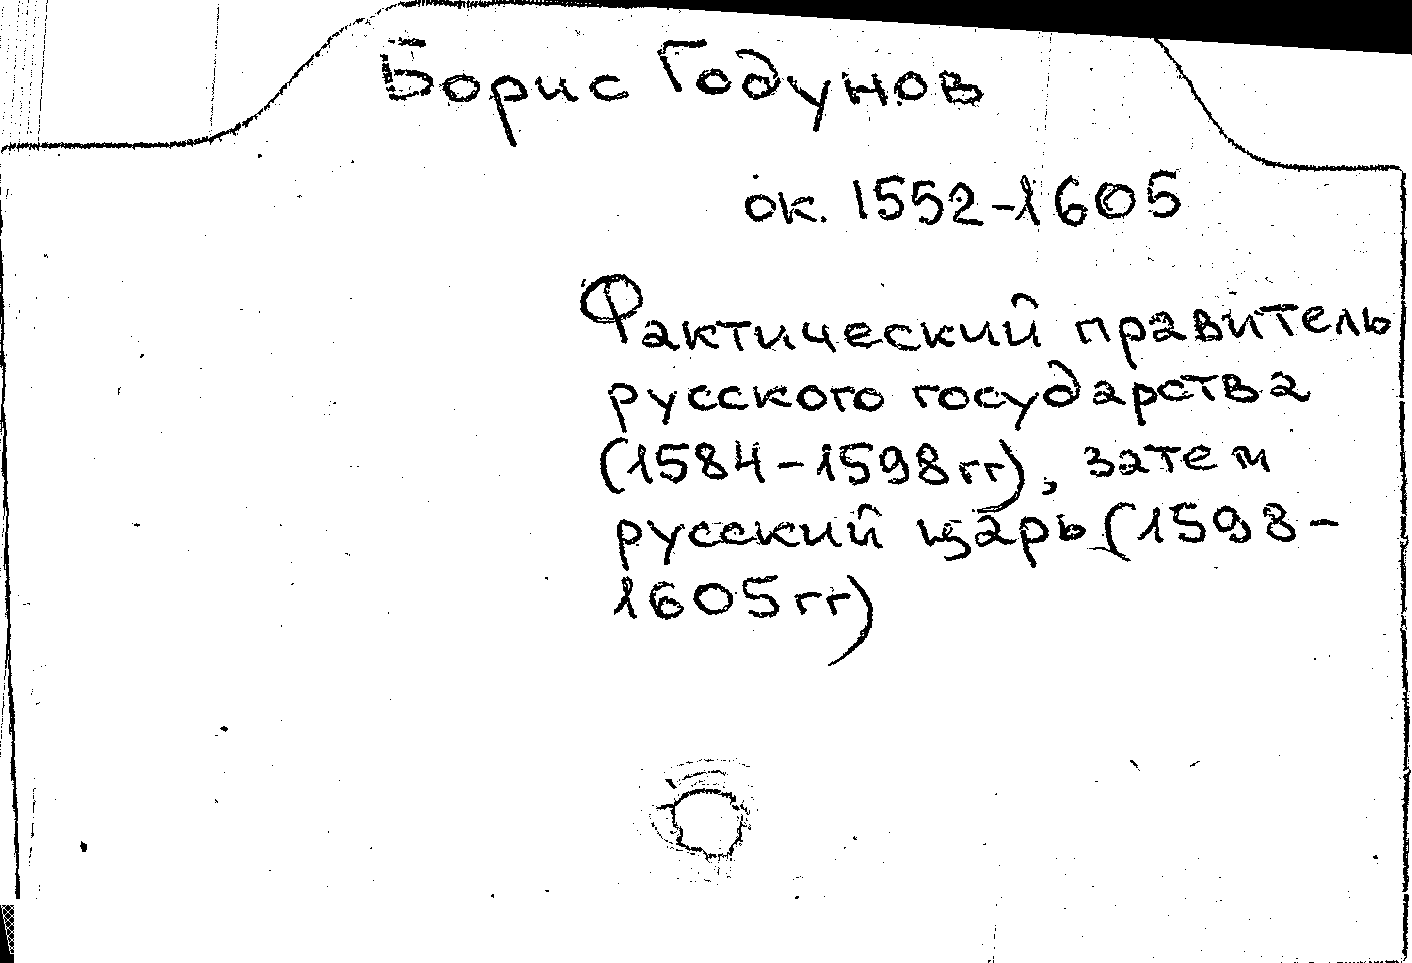 Борис Годунов
ок. 1552-1605
Фактический правитель
русского государства
(1584-1598гг), затем
русский царь (1598-
1605гг)